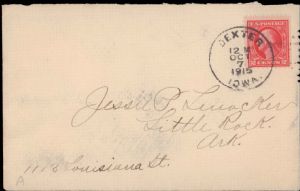 DEXTER
12 M
OCT
7
1915
IOWA.
U.S. POSTAGE
2 CENTS 2
Little Rock,
Ark.
Louisiana St.